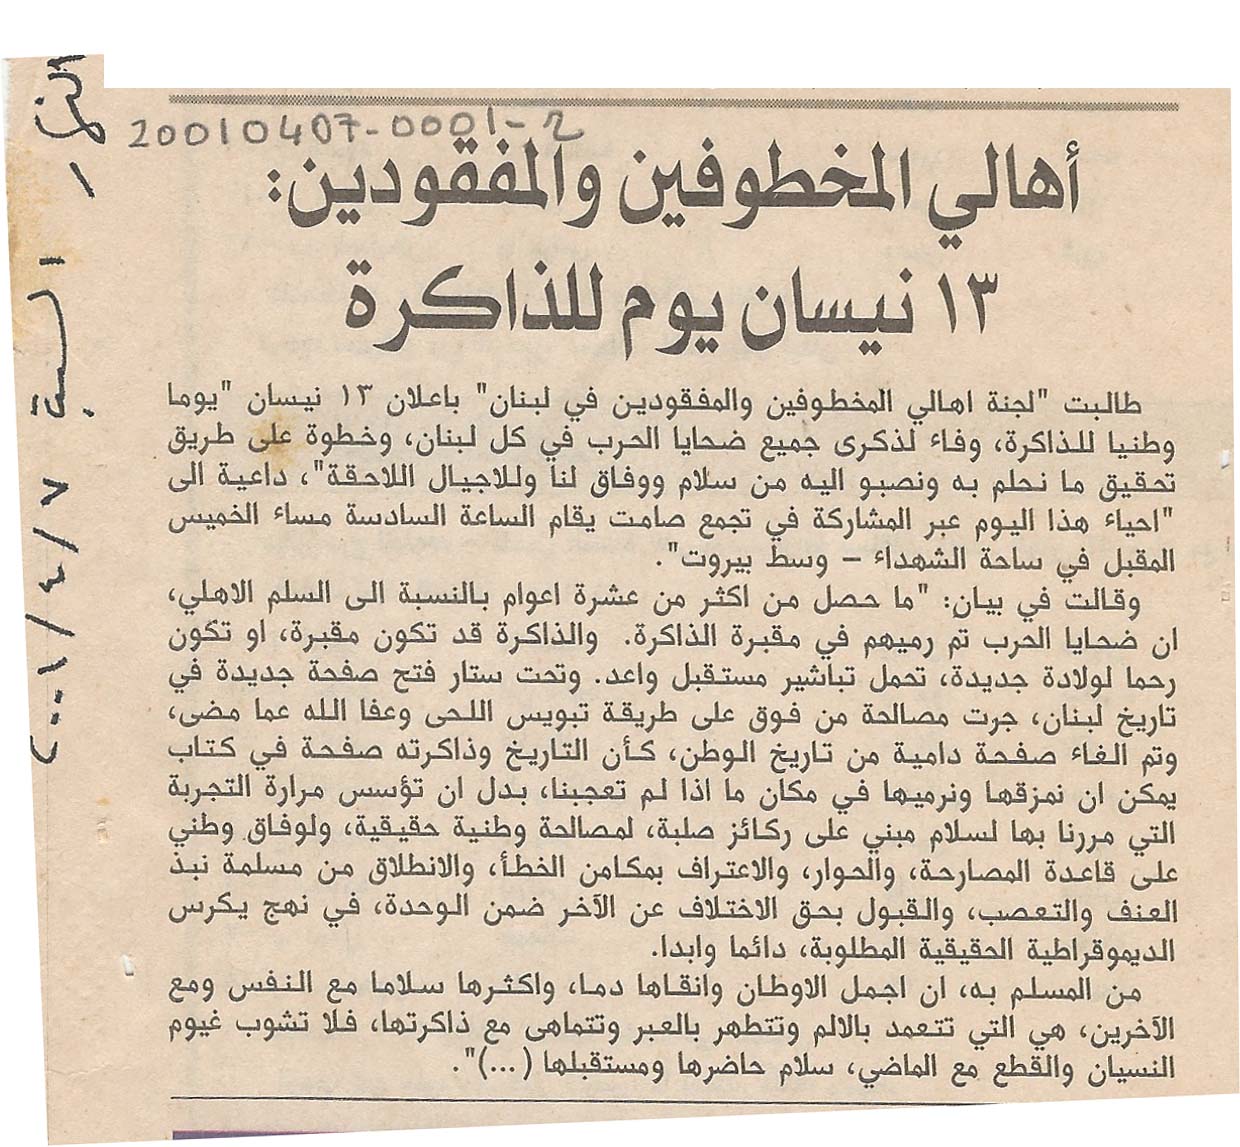 20010407-0001-2
أهالي المخطوفين والمفقودين:
١٣ نيسان يوم للذاكرة
طالبت "لجنة اهالي المخطوفين والمفقودين في لبنان" باعلان ١٣ نيسان "يوما
وطنيا للذاكرة، وفاء لذكرى جميع ضحايا الحرب في كل لبنان، وخطوة على طريق
تحقيق ما نحلم به ونصبو اليه من سلام ووفاق لنا وللاجيال اللاحقة"، داعية الى
"احياء هذا اليوم عبر المشاركة في تجمع صامت يقام الساعة السادسة مساء الخميس
المقبل في ساحة الشهداء – وسط بيروت".
وقالت في بيان: "ما حصل من اكثر من عشرة اعوام بالنسبة الى السلم الاهلي،
ان ضحايا الحرب تم رميهم في مقبرة الذاكرة. والذاكرة قد تكون مقبرة، او تكون
رحما لولادة جديدة، تحمل تباشير مستقبل واعد. وتحت ستار فتح صفحة جديدة في
تاريخ لبنان، جرت مصالحة من فوق على طريقة تبويس اللحى وعفا الله عما مضى،
وتم الغاء صفحة دامية من تاريخ الوطن، كأن التاريخ وذاكرته صفحة في كتاب
يمكن ان نمزقها ونرميها في مكان ما اذا لم تعجبنا، بدل ان تؤسس مرارة التجربة
التي مررنا بها لسلام مبني على ركائز صلبة، لمصالحة وطنية حقيقية، ولوفاق وطني
على قاعدة المصارحة، والحوار، والاعتراف بمكامن الخطأ، والانطلاق من مسلمة نبذ
العنف والتعصب، والقبول بحق الاختلاف عن الآخر ضمن الوحدة، في نهج يكرس
الديموقراطية الحقيقية المطلوبة، دائما وابدا.
من المسلم به، ان اجمل الاوطان وانقاها دما، واكثرها سلاما مع النفس ومع
الآخرين، هي التي تتعمد بالالم وتتطهر بالعبر وتتماهى مع ذاكرتها، فلا تشوب غيوم
النسيان والقطع مع الماضي، سلام حاضرها ومستقبلها (...)".
٧/٤/٢٠٠١